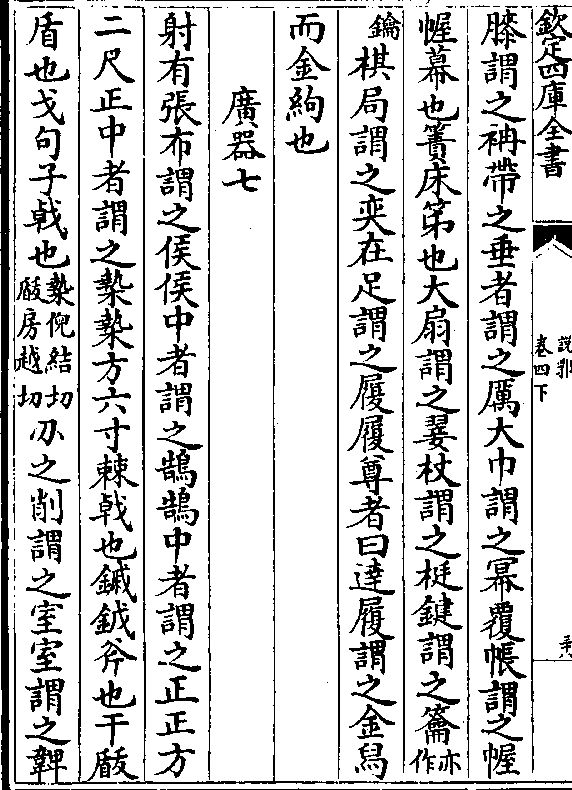 欽定四庫全書
說郛
卷四下
膝謂之衻帶之垂者謂之厲大巾謂之冪覆帳謂之幄
幄幕也簀床笫也大扇謂之翣杖謂之梃鍵謂之籥亦作
鑰棋局謂之奕在足謂之履履尊者曰達履謂之金舄
而金絇也
廣器七
射有張布謂之侯侯中者謂之鵠鵠中者謂之正正方
二尺正中者謂之槷槷方六寸棘戟也鏚鉞斧也干瞂
盾也戈句孑戟也槷倪結切瞂房越切刀之削謂之室室謂之鞞